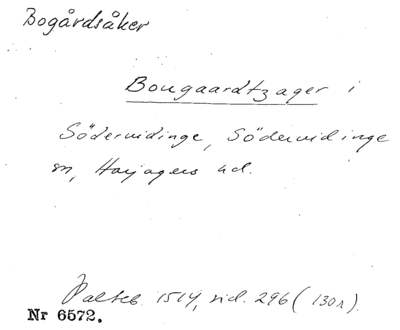 Bogårdsåker
Bougaardtzager i
Södervidinge, Södervidinge
sn, Harjagers hd.
Palteb. 1514, sid. 296 (130r).
Nr 6572.